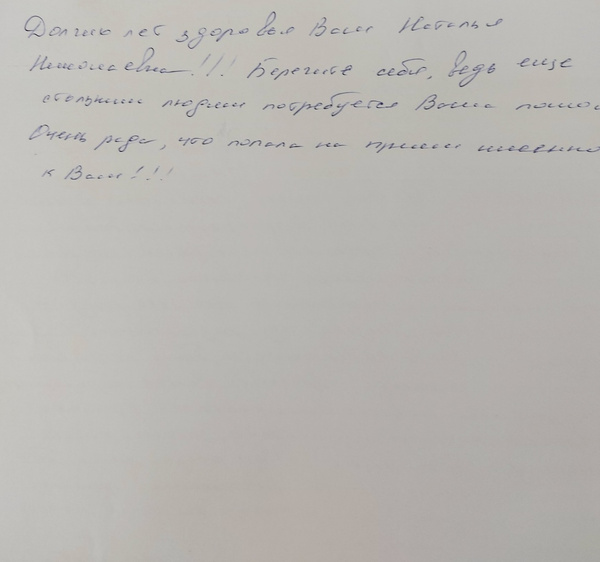 Долгих лет здоровья Вам Наталья
Николаевна!!! Берегите себя, ведь еще
стольким людям потребуется Ваша помощ
Очень рада, что попала на прием именно
к Вам!!!